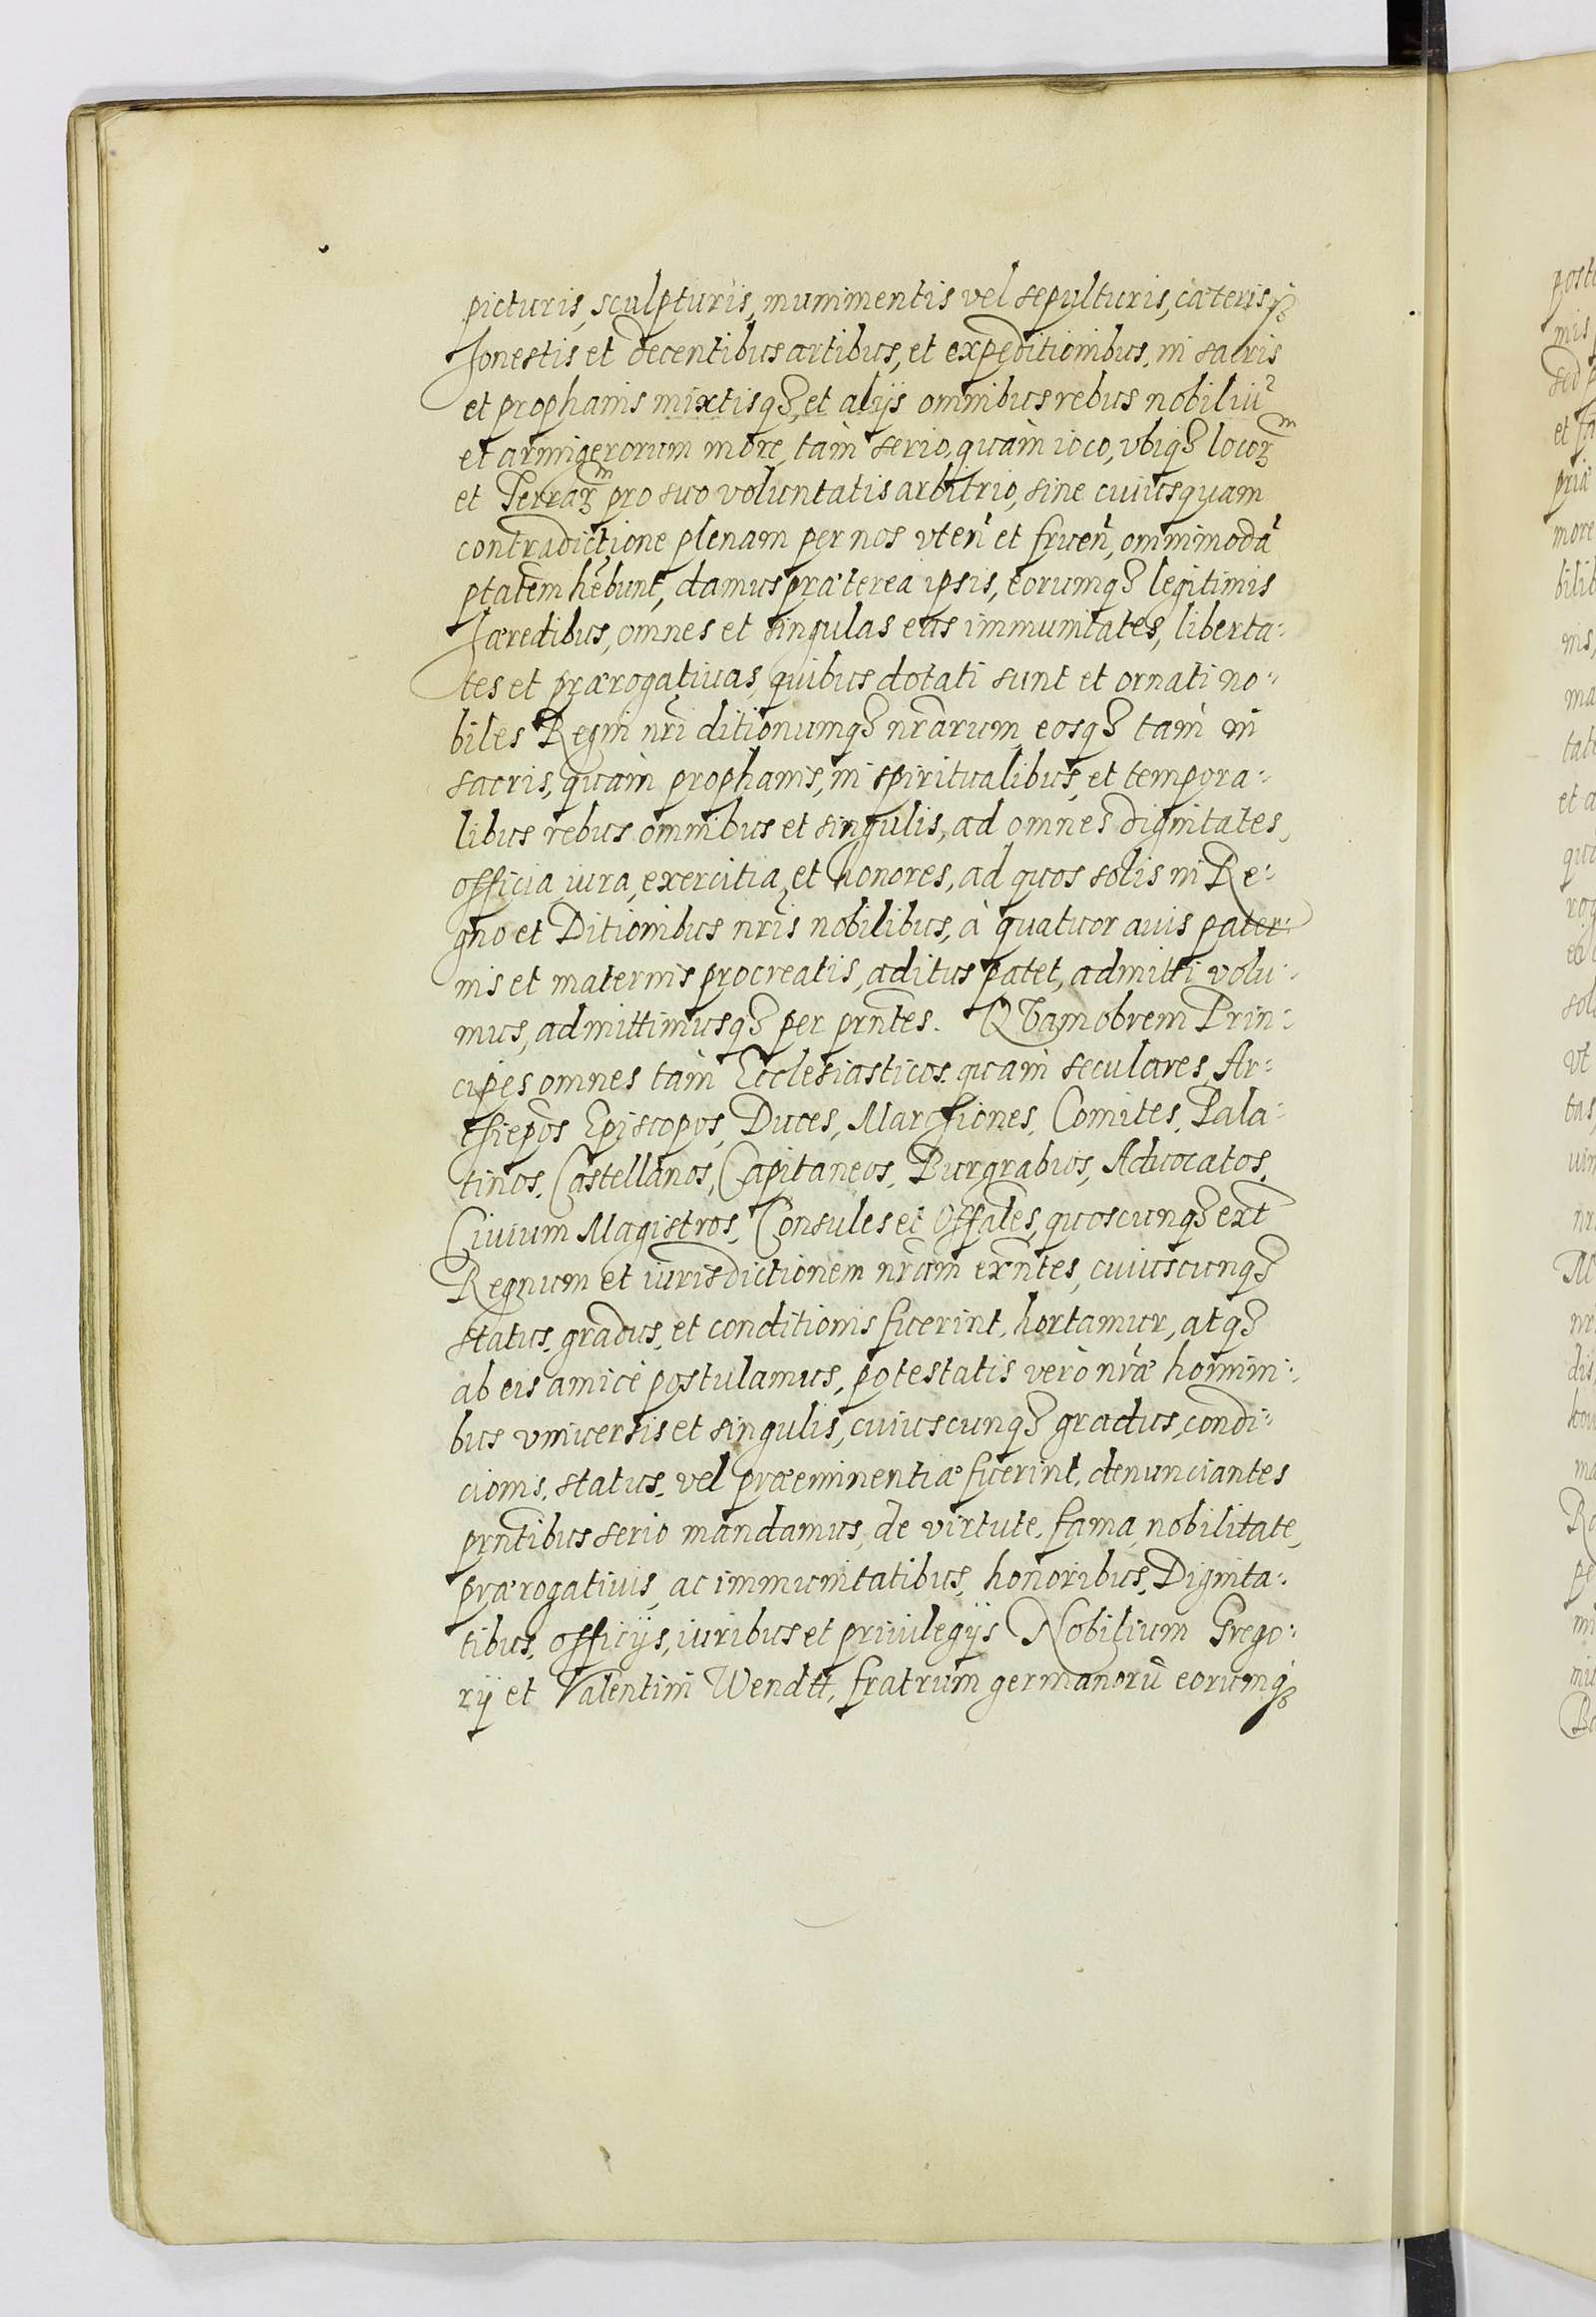 picturis, sculpturis, munimentis vel sepulturis, cæterisq₃
honestis et decentibus artibus, et expeditionibus, in sacris
et prophanis mixtisq₃, et alijs omnibus rebus nobiliũ
et armigerorum more, tàm serio, quàm ioco, vbiq₃ locoꝝᵐ
et Terraꝝᵐ pro suo voluntatis arbitrio, sine cuiusquam
contradictione plenam per nos vteñ et frueñ, omnimodã
ptatẽm hẽbunt, damus præterea ipsis, eorumq₃ legitimis
hæredibus, omnes et singulas eas immunitates, liberta:
tes et prærogatiuas, quibus dotati sunt et ornati no:
biles Regni nrĩ ditionumq₃ nrãrum, eosq₃ tàm in
sacris, quàm prophanis, in spiritualibus, et tempora:
libus rebus omnibus et singulis, ad omnes dignitates,
officia iura, exercitia, et honores, ad quos solis in Re:
gno et Ditionibus nrĩs nobilibus, à quatuor auis pater:
nis et maternis procreatis, aditus patet, admitti volu:
mus, admittimusq₃ per prñtes. QVamobrem Prin:
cipes omnes tàm Ecclesiasticos quàm seculares, Ar:
chiepõs Episcopos, Duces, Marchiones, Comites, Pala:
tinos, Castellanos, Capitaneos, Burgrabios, Aduocatos,
Ciuium Magistros, Consules et Offãles, quoscunq₃ ext̃
Regnum et iurisdictionem nrãm exñtes, cuiuscunq₃
status, gradus, et conditionis fuerint, hortamur, atq₃
ab eis amicè postulamus, potestatis verò nrãe homini:
bus vniuersis et singulis, cuiuscunq₃ gradus, condi:
cionis, status, vel præeminentiæ fuerint, denunciantes
prñtibus serio mandamus, de virtute, fama, nobilitate,
prærogatiuis, ac immunitatibus, honoribus, Dignita:
tibus, officijs, iuribus et priuilegijs Nobilium Grego:
rij et Valentini Wendtt, fratrum germanorũ eorumq₃